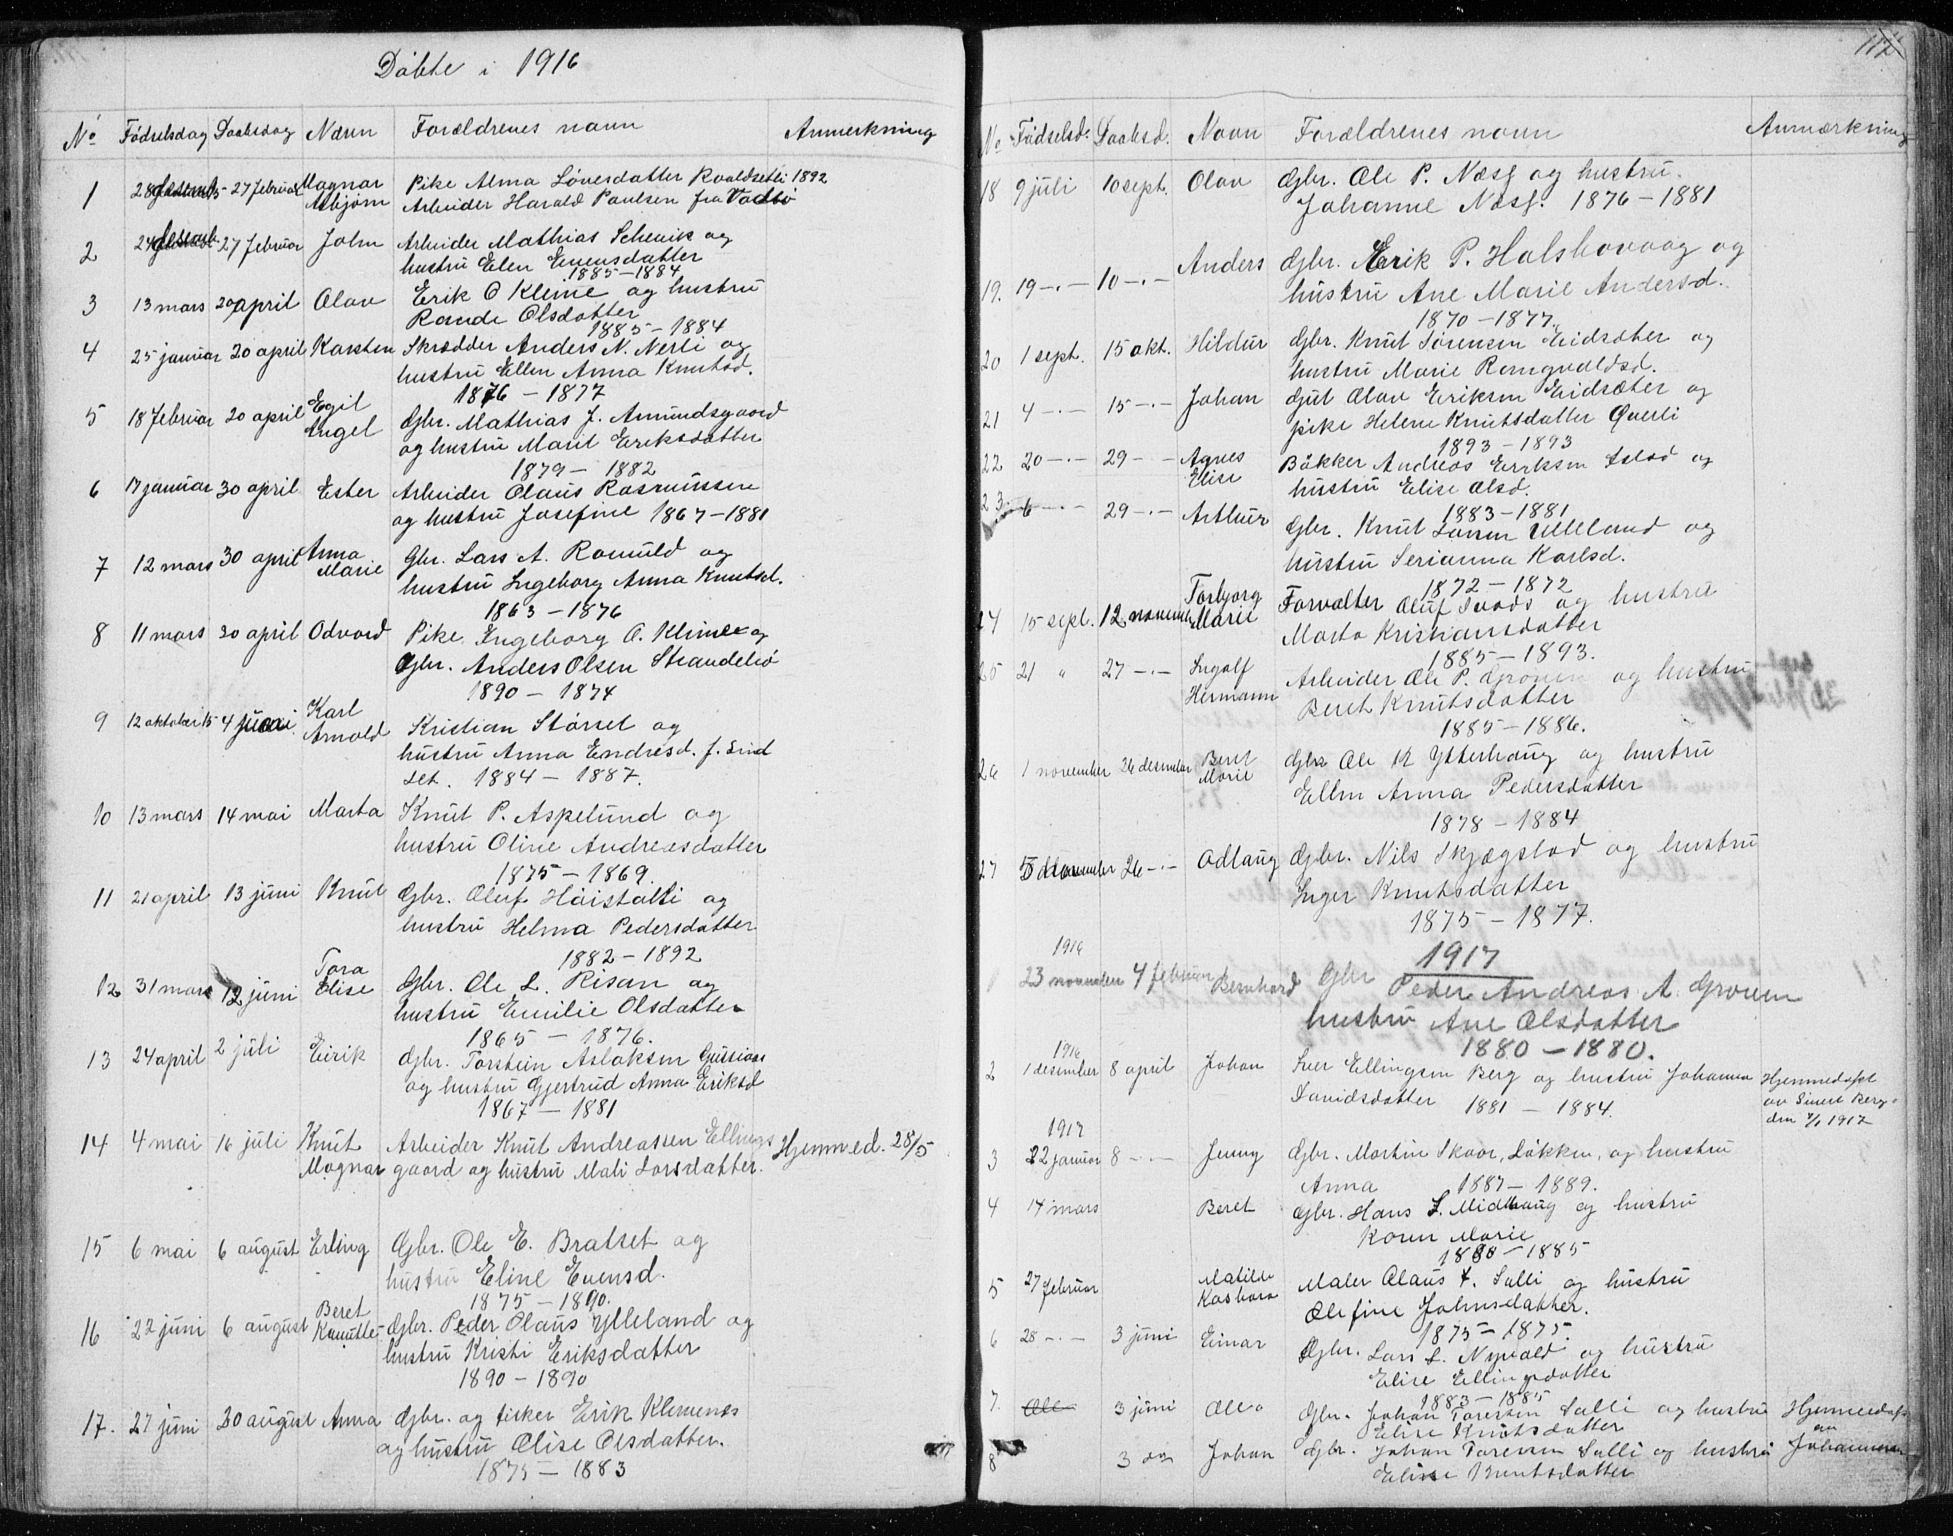 Döbte i 1916
No Födselsdag Daabsdag Navn Forældrenes navn Anmerkning
1 28 desemb 15 27 februar Magnar Pike Alma Lövesdatter 1892
Asbjörn Arbeider Harald Paulsen fra Vadsö
2 24 desemb 27 februar John Arbeider Mathias Schevik og
hustru Elen Evensdatter
1885 – 1884
3 13 mars 20 april Olav Erik O Kleive og hustru
Rande Olsdatter
1885 – 1884
4 25 januar 20 april Karsten Skrædder Anders N. Nerli og
hustru Ellen Anna Knutsd.
1876 – 1877
5 18 februar 20 april Egil Gbr. Mathias J. Amundsgaard
Engel og hustru Marit Eriksdatter
1879 – 1882
6 17 januar 30 april Ester Arbeider Olaus Rasmussen
og hustru Josefine 1867 – 1881
7 12 mars 30 april Anna Gbr. Lars A. Romuld og
Marie hustru Ingeborg Anna Knutsd.
1863 – 1876
8 11 mars 30 april Odvard Pike Ingeborg O. Kleive og
Gbr. Anders Olsen Strandebö
1890 – 1874
9 12 oktober 15 4 Karl Kristian Störset og
Arnold hustru Anna Endresd. f. Lind
set. 1884 – 1887.
10 13 mars 14 mai Marta Knut P. Aspelund og
hustru Oline Andreasdatter
1875 – 1869.
11 21 april 13 juni Knut Gbr. Oluf Höistølli og
hustru Helma Pedersdatter
1882 – 1892
12 31 mars 12 juni Tora Gbr. Ole L. Risan og
Elise hustru Emilie Olsdatter
1865 – 1876.
13 24 april 2 juli Eirik Gbr. Torstein Aslaksen Gussiaas
og hustru Gjertrud Anna Eriksd
1867 – 1881
14 4 mai 16 juli Knut Arbeider Knut Andreassen Ellings Hjemmed. 28/5
Magnar gaard og hustru Mali Larsdatter.
15 6 mai 6 august Erling Gbr. Ole E. Bratset og
hustru Eline Evensd.
1875 – 1890.
16 22 juni 6 august Beret Gbr. Peder Olaus Ylleland og
hustru Kristi Eriksdatter
1890 – 1890
17. 27 juni 20 august Anna Gbr. og fisker Erik Klemenes
og hustru Elise Olsdatter.
1875 – 1883
112
No Födselsd. Daabsd. Navn Forældrenes navn Anmærkning
18 9 juli 10 sept. Olav Gbr. Ole P. Næss og hustru
Johanne Næss. 1876 – 1881
19. 19 –.– 10 –.– Anders Gbr. Erik P. Halsbovaag og
hustru Ane Marie Andersd.
1870 – 1877.
20 1 sept. 15 okt. Hildur Gbr. Knut Sörensen Eidsæter og
hustru Marie Rongvaldsd.
21 4 –.– 15 –.– Johan Gut Olav Eriksen Eidsæter og
pike Helene Knutsdatter Qverli
1893 – 1893
22 20 –.– 29 – – Agnes Bakker Andreas Eriksen og
Elise hustru Elise Olsd.
1883 – 1881
23. 6 –.– 29 –.– Arthur Gbr. Knut Larsen Ulleland og
hustru Serianna Karlsd.
1872 – 1872
24 15 sept. 12 november Torbjorg Forvalter Oluf og hustru
Marie Marta Kristiansdatter
1885 – 1893.
25 21 " 27 –.– Ingolf Arbeider Ole P. Groven og hustru
Hermann Beret Knutsdatter
1885 – 1886.
26 1 november 26 desember Beret Gbr Ole K Ytterhaug og hustru
Marie Ellen Anna Pedersdatter
1878 – 1884
27 november 26 –.– Odlaug Gbr. Nils Skjægstad og hustru
Inger Knutsdatter
1875 – 1877.
1917
1916
1 23 november 4 februar Bernhard Gbr Peder Andreas A. Groven
hustru Ane Olsdatter
1880 – 1880.
1916
2 1 desember 8 april Johan Iver Ellingsen Berg og hustru Johanna Hjemmedøpt
Davidsdatter 1881 – 1884. av Sivert Berg
den 7/1 1917
1917
3 22 januar 8 –.– Jenny Gbr. Martin Skaar, Løkken, og hustru
Anna 1887 – 1889.
4 14 mars Beret Gbr. Hans S. Midhaug og hustru
Karen Marie
1880 – 1885
5 27 februar Matilde Maler Olaus T. Salli og hustru
Kasbara Olefine Johnsdatter.
1875 – 1875.
6 28 –.– 3 juni Einar Gbr. Lars L. Nyvold og hustru
Elise Ellingsdatter
1883 – 1885
7. Ole 3 juni Ole Gbr. Johan Toresen Salli og hustru Hjemmedøpt
Elise Knutsdatter av
8 3 og Johan Gbr. Johan Toresen Salli og hustru Johannesen
Elise Knutsdatter